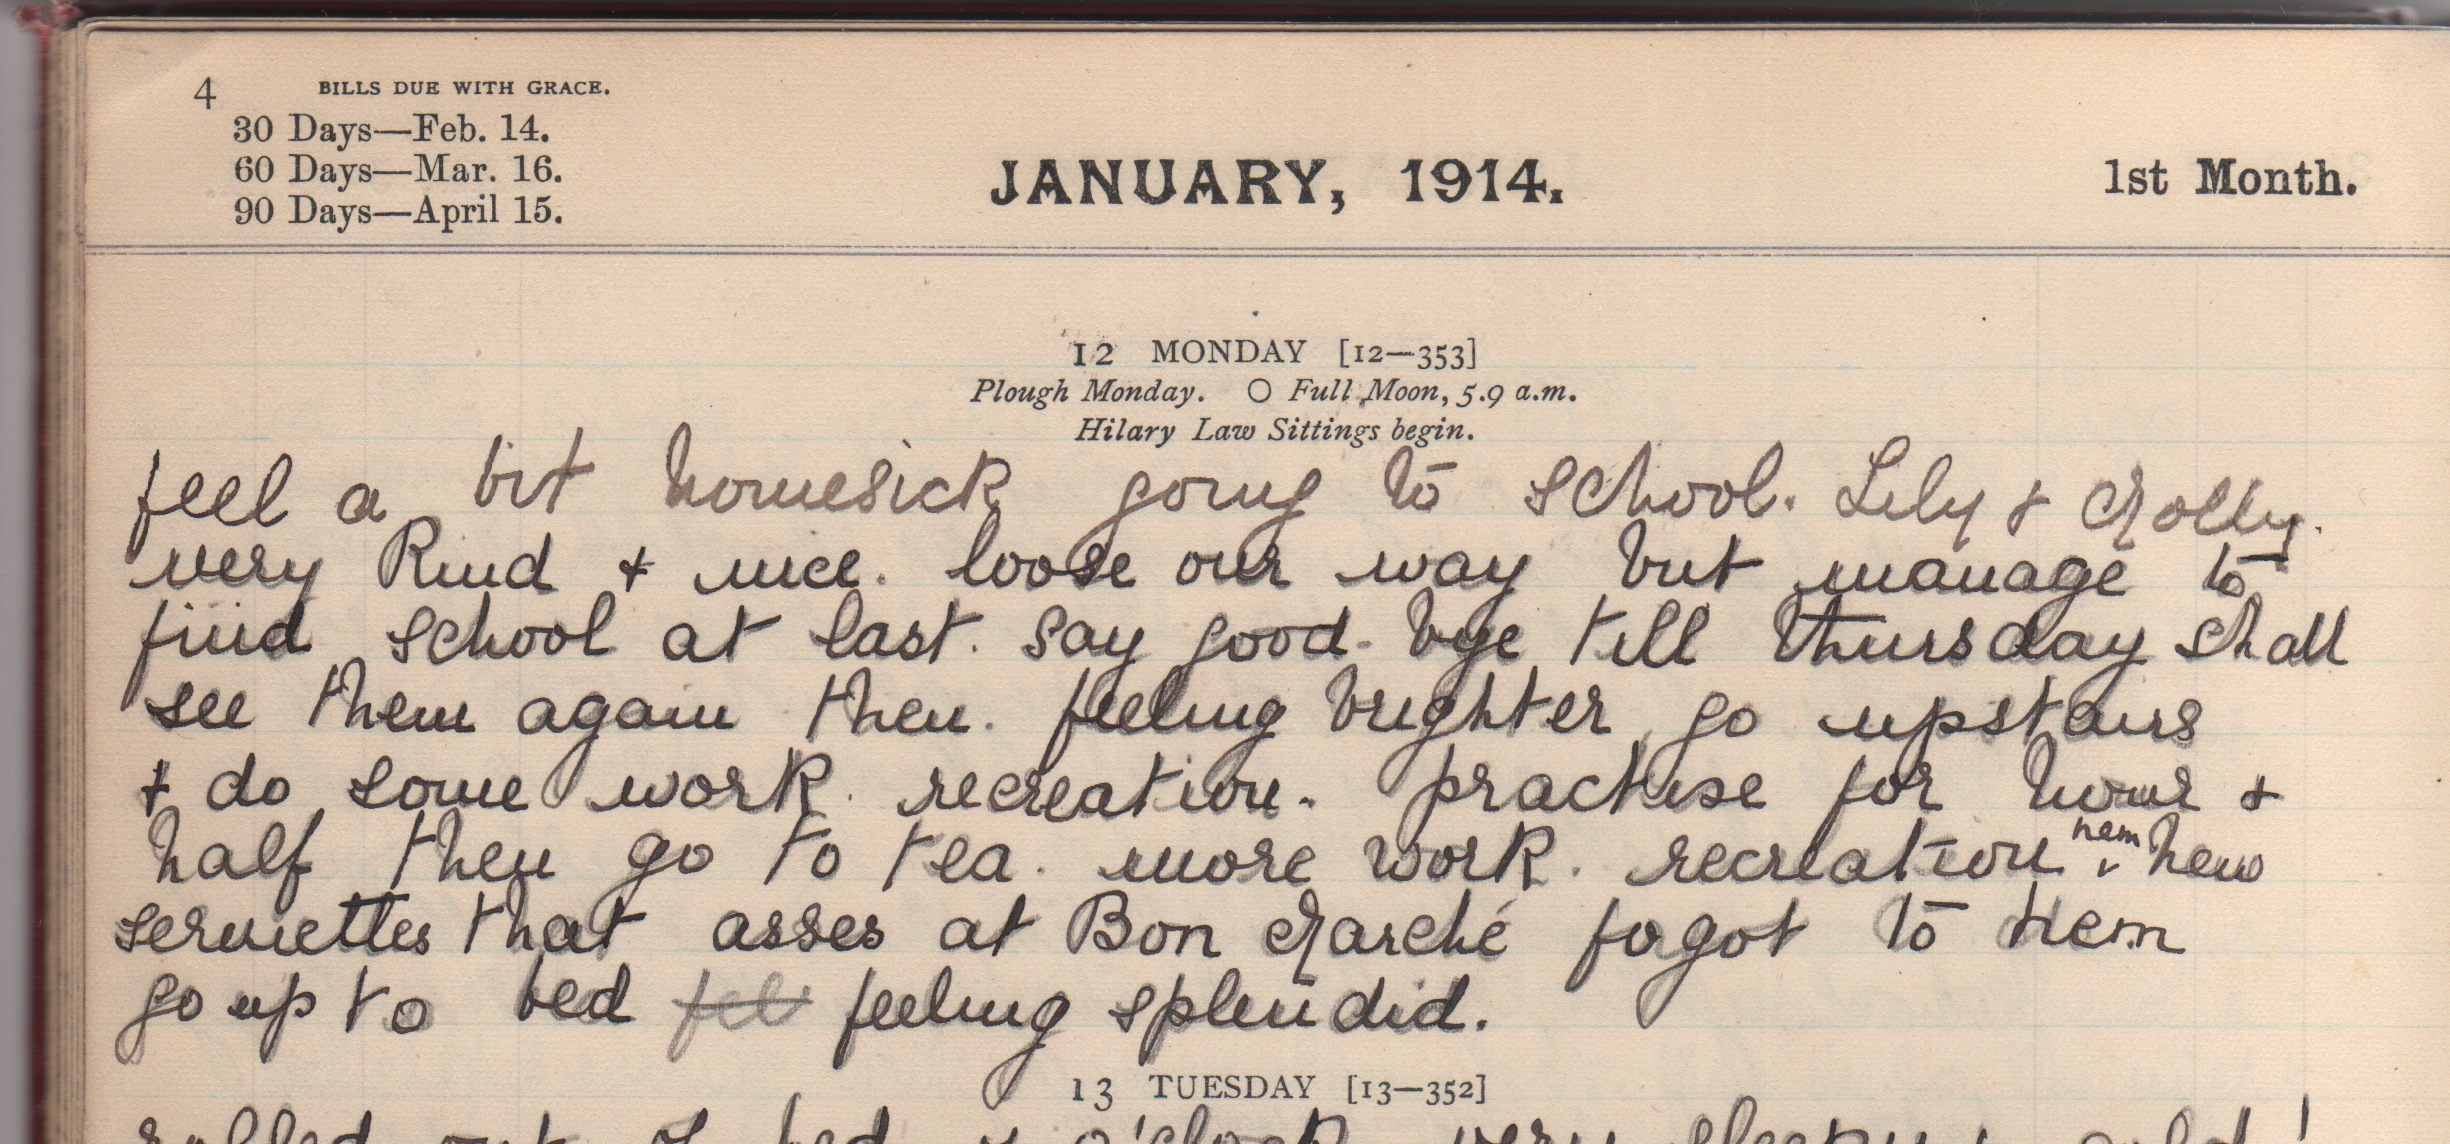 4 BILLS DUE WITH GRACE.
30 Days—Feb. 14.
60 Days—Mar. 16.
90 Days—April 15.
JANUARY, 1914.
1st Month.
12 MONDAY [12—353]
Plough Monday. ○ Full Moon, 5.9 a.m.
Hilary Law Sittings begin.
feel a bit homesick going to school. Lily & Molly.
very kind & nice. loose our way but manage to
find school at last. say good-bye till thursday shall
see them again then. feeling brighter go upstairs
& do some work. recreation. practise for hour &
half then go to tea. more work. recreation hem new
serviettes that asses at Bon Marché fogot to hem
go up to bed fel feeling splendid.
13 TUESDAY [13—352]
rolled out of bed o'clock very sleepy cold!